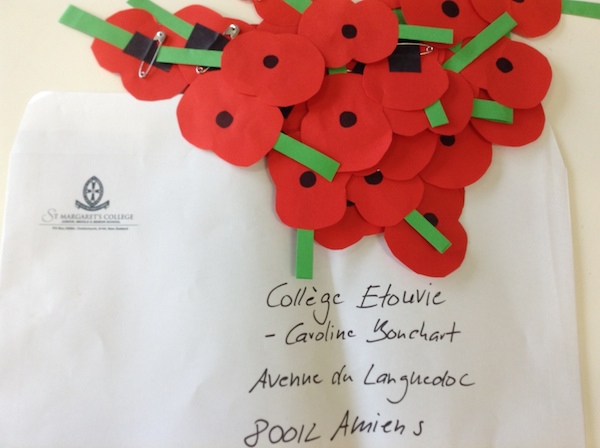 St MARGARET'S COLLEGE
Collège Etouvie
- Caroline Bouchart
Avenue du Languedoc
80012 Amiens